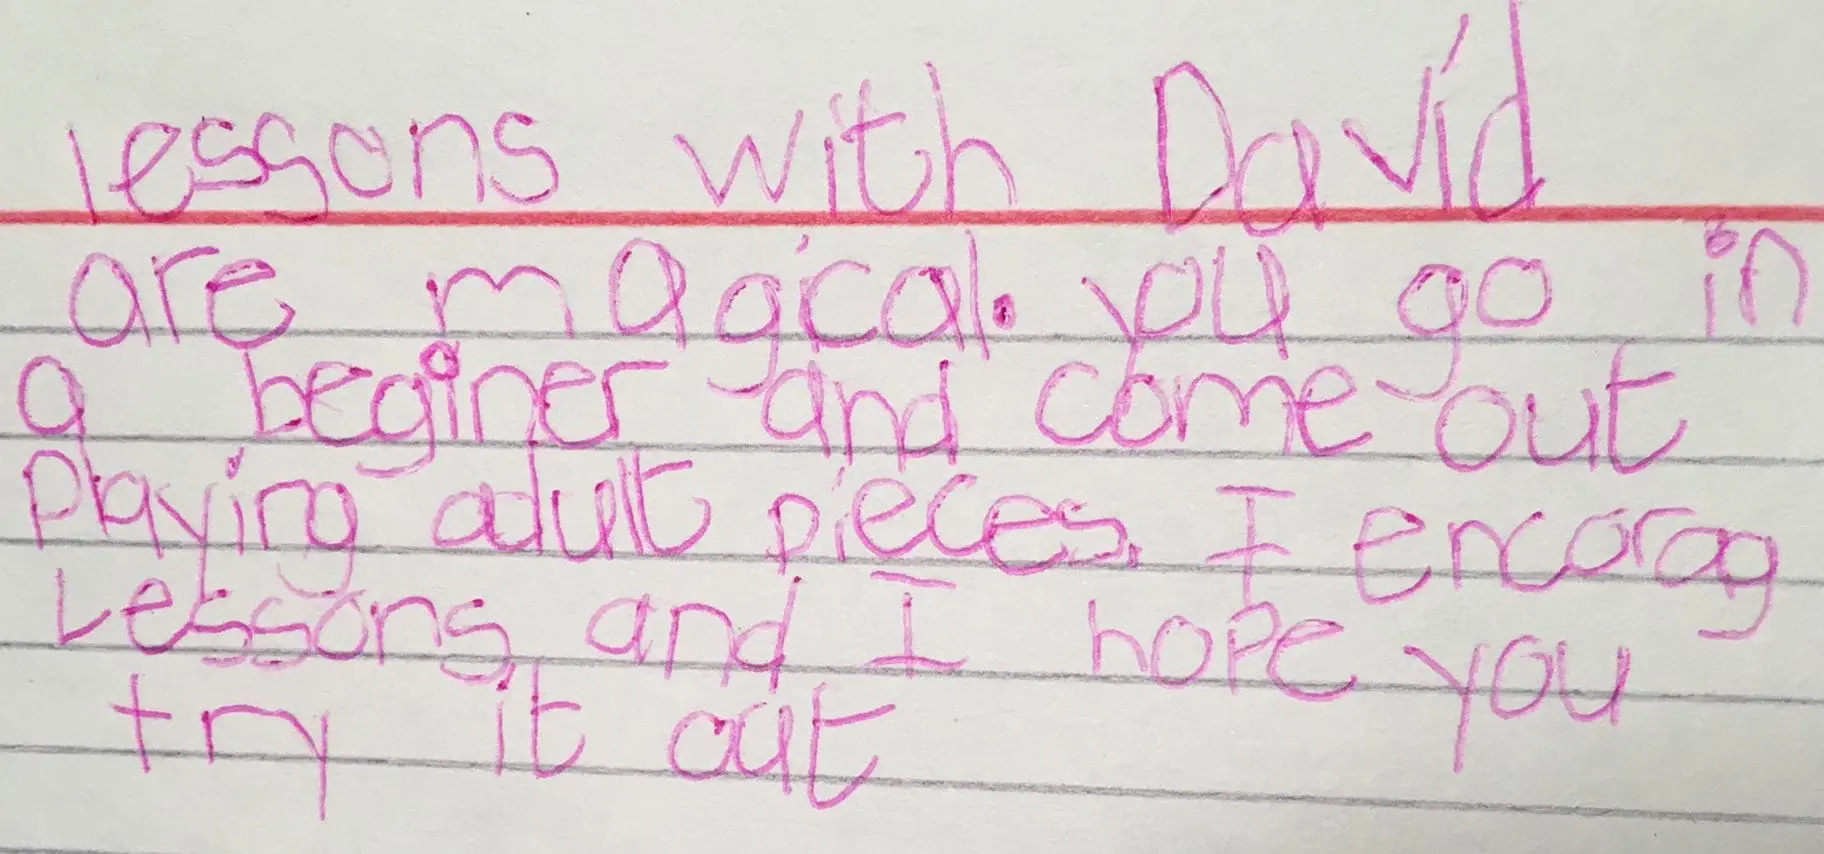 lessons with David
are magical. you go in
a beginer and come out
Playing adult pieces. I encorag
Lessons and I hope you
try it out